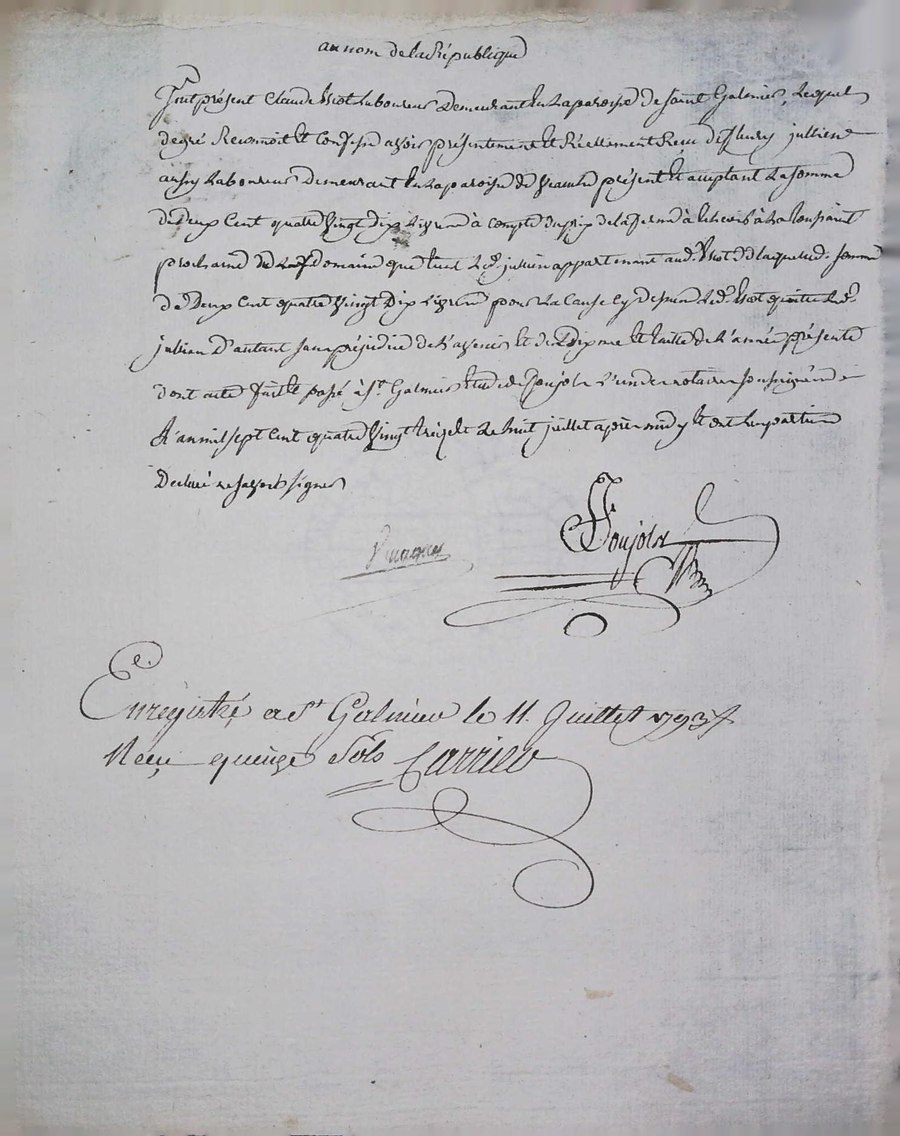 au nom de la République
Fut présent Claude laboureur demeurant en la paroisse de saint Galmier, Lequel
de gré Reconnoit et confesse avoir présentement et Réellement Reçu de fleury jullien
aussy laboureur demeurant en la paroisse de présent et acceptant La somme
de Deux Cent quatre vingt dix Livres à compte du prix de la ferme à echeoir à La toussaint
prochaine domaine que tient Led. jullien appartenant aud. de laquelle d. somme
de Deux Cent quatre vingt Dix Livres pour La Cause cy dessus Led. quitte Led.
jullien D'autant sans préjudice de et de Dixme et de L'année présente
dont acte fait et passé à St. Galmier etude de Poujols L'un des notaires soussignés
L'an mil sept Cent quatre vingt treize et Le huit juillet après midy et ont Les parties
Declaré ne savoir signer
Poujols
Enregistré a St Galmier le 11. Juillet 1793
Reçu quinze sols Carrier